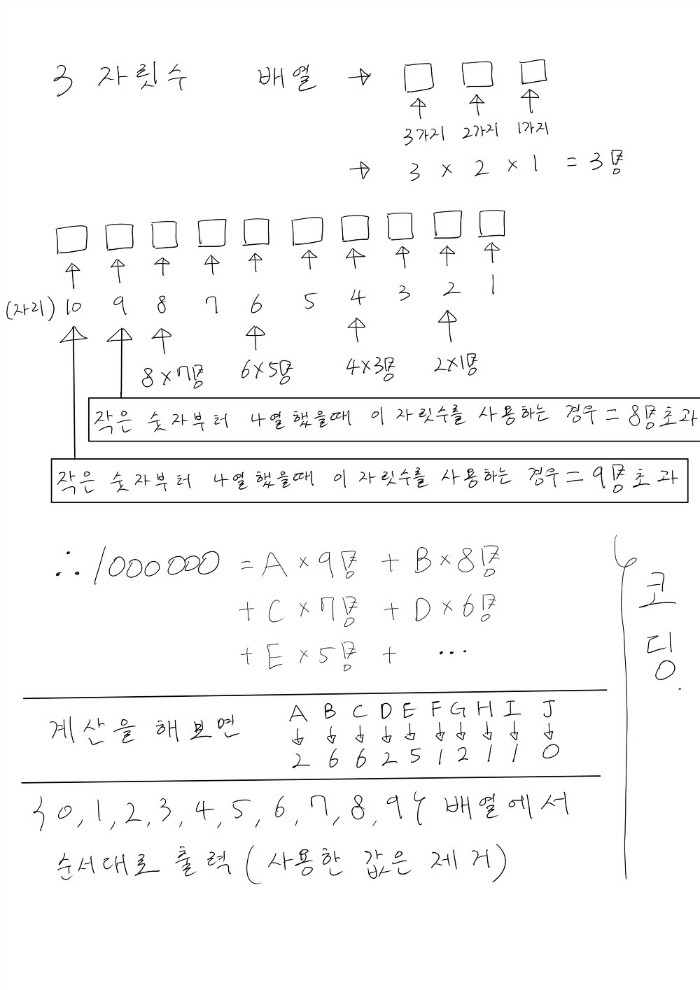 3 자릿수 배열 →
3가지 2가지 1가지
→ 3 × 2 × 1 = 3명
(자리) 10 9 8 7 6 5 4 3 2 1
8×7명 6×5명 4×3명 2×1명
작은 숫자부터 나열했을때 이 자릿수를 사용하는 경우 = 8명초과
작은 숫자부터 나열했을때 이 자릿수를 사용하는 경우 = 9명초과
∴ 1000000 = A × 9명 + B × 8명
+ C × 7명 + D × 6명
+ E × 5명 + ...
코딩.
계산을 해보면
A B C D E F G H I J
↓ ↓ ↓ ↓ ↓ ↓ ↓ ↓ ↓ ↓
2 6 6 2 5 1 2 1 1 0
{0, 1, 2, 3, 4, 5, 6, 7, 8, 9} 배열에서
순서대로 출력 (사용한 값은 제거)